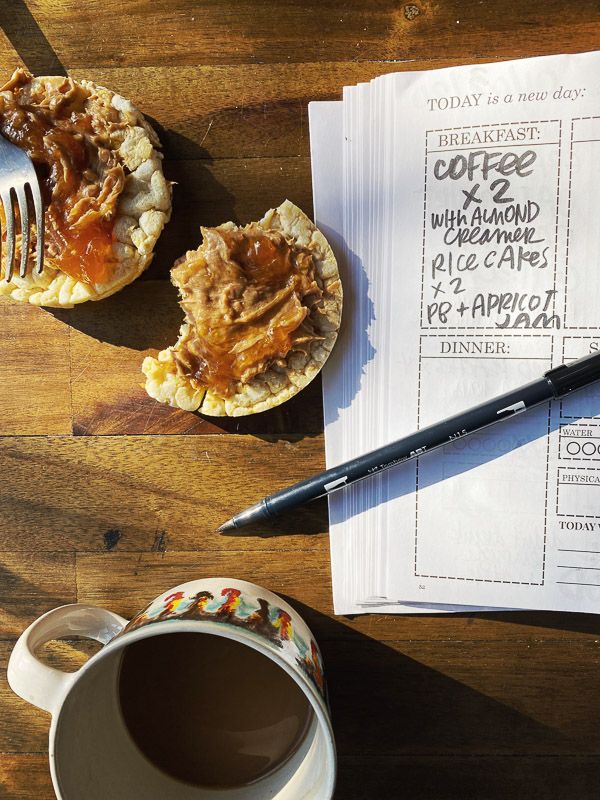 TODAY is a new day:
BREAKFAST:
COFFEE
x 2
with ALMOND
CREAMER
RICE CAKES
x 2
PB + APRICOT
JAM
DINNER:
S
WATER
PHYSICA
TODAY W
Tombow ABT N15
52